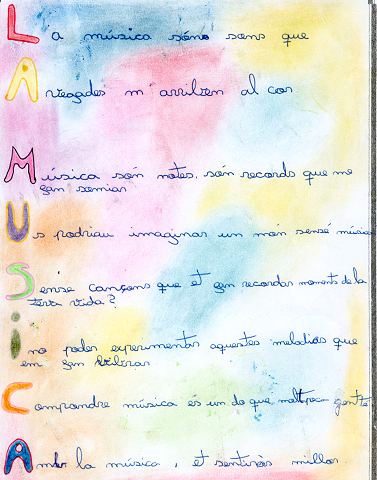 La música sóno sons que
A vegades m'arriben al cor.
Música són notes, són records que me
fan somiar
Us podriau imaginar un món sense música
Sense cançons que et fan recordar moments de la
teva vida?
i no poder experimentar aquestes melodias que
em fan vibrar
Comprendre música és un do que molt poca gent té
Amb la música, et sentiràs millor.